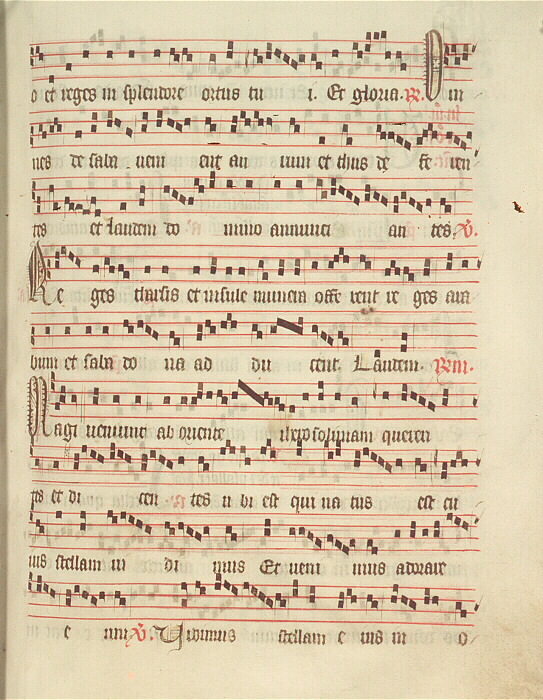 et reges in splendore ortus tu i. Et gloria. R. O m
nes de saba veni ent au rum et thus de fe ren
tes et laudem do mino annunci an tes. V.
Re ges tharsis et insule munera offe rent re ges ara
bum et saba do na ad du cent. Laudem. Rm.
Magi veniunt ab oriente iherosolimam queren
tes et di cen tes u bi est qui na tus est cu
ius stellam vi di mus Et veni mus adorare
e um V. Vidimus stellam e ius in o